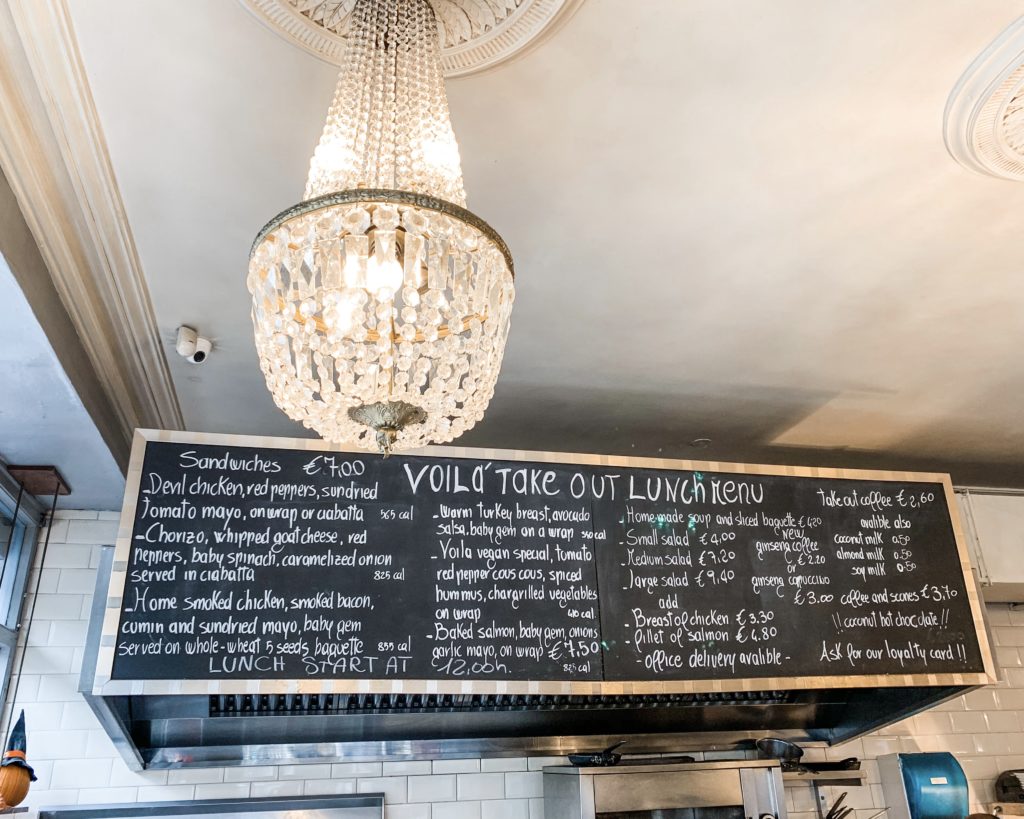 Sandwiches €7,00
-Devil chicken, red peppers, sundried
Tomato mayo, on wrap or ciabatta 565 cal
-Chorizo, whipped goat cheese, red
peppers, baby spinach, caramelized onion
served in ciabatta 825 cal
-Home smoked chicken, smoked bacon,
cumin and sundried mayo, baby gem
served on whole-wheat 5 seeds baguette 855 cal
LUNCH START AT 12,00h.
VOILÁ TAKE OUT LUNCH MENU
-Warm turkey breast, avocado
salsa, baby gem on a wrap cal
-Voila vegan special, tomato
red pepper cous cous, spiced
hummus, chargrilled vegetables
on wrap cal
-Baked salmon, baby gem, onions
garlic mayo, on wrap €7,50
825 cal
-Home made soup and sliced baguette € 4,20
-Small salad €4,00
-Medium salad €7,20
-Large salad €9,40
add
-Breast of chicken €3.30
-Fillet of salmon €4.80
-office delivery avalible-
new
ginseng coffee
€2.20
or
ginseng capuccino
€3.00
take out coffee €2,60
avalible also
coconut milk 0.50
almond milk 0.50
soy milk 0.50
coffee and scones €3.70
!! coconut hot chocolate !!
Ask for our loyalty card !!